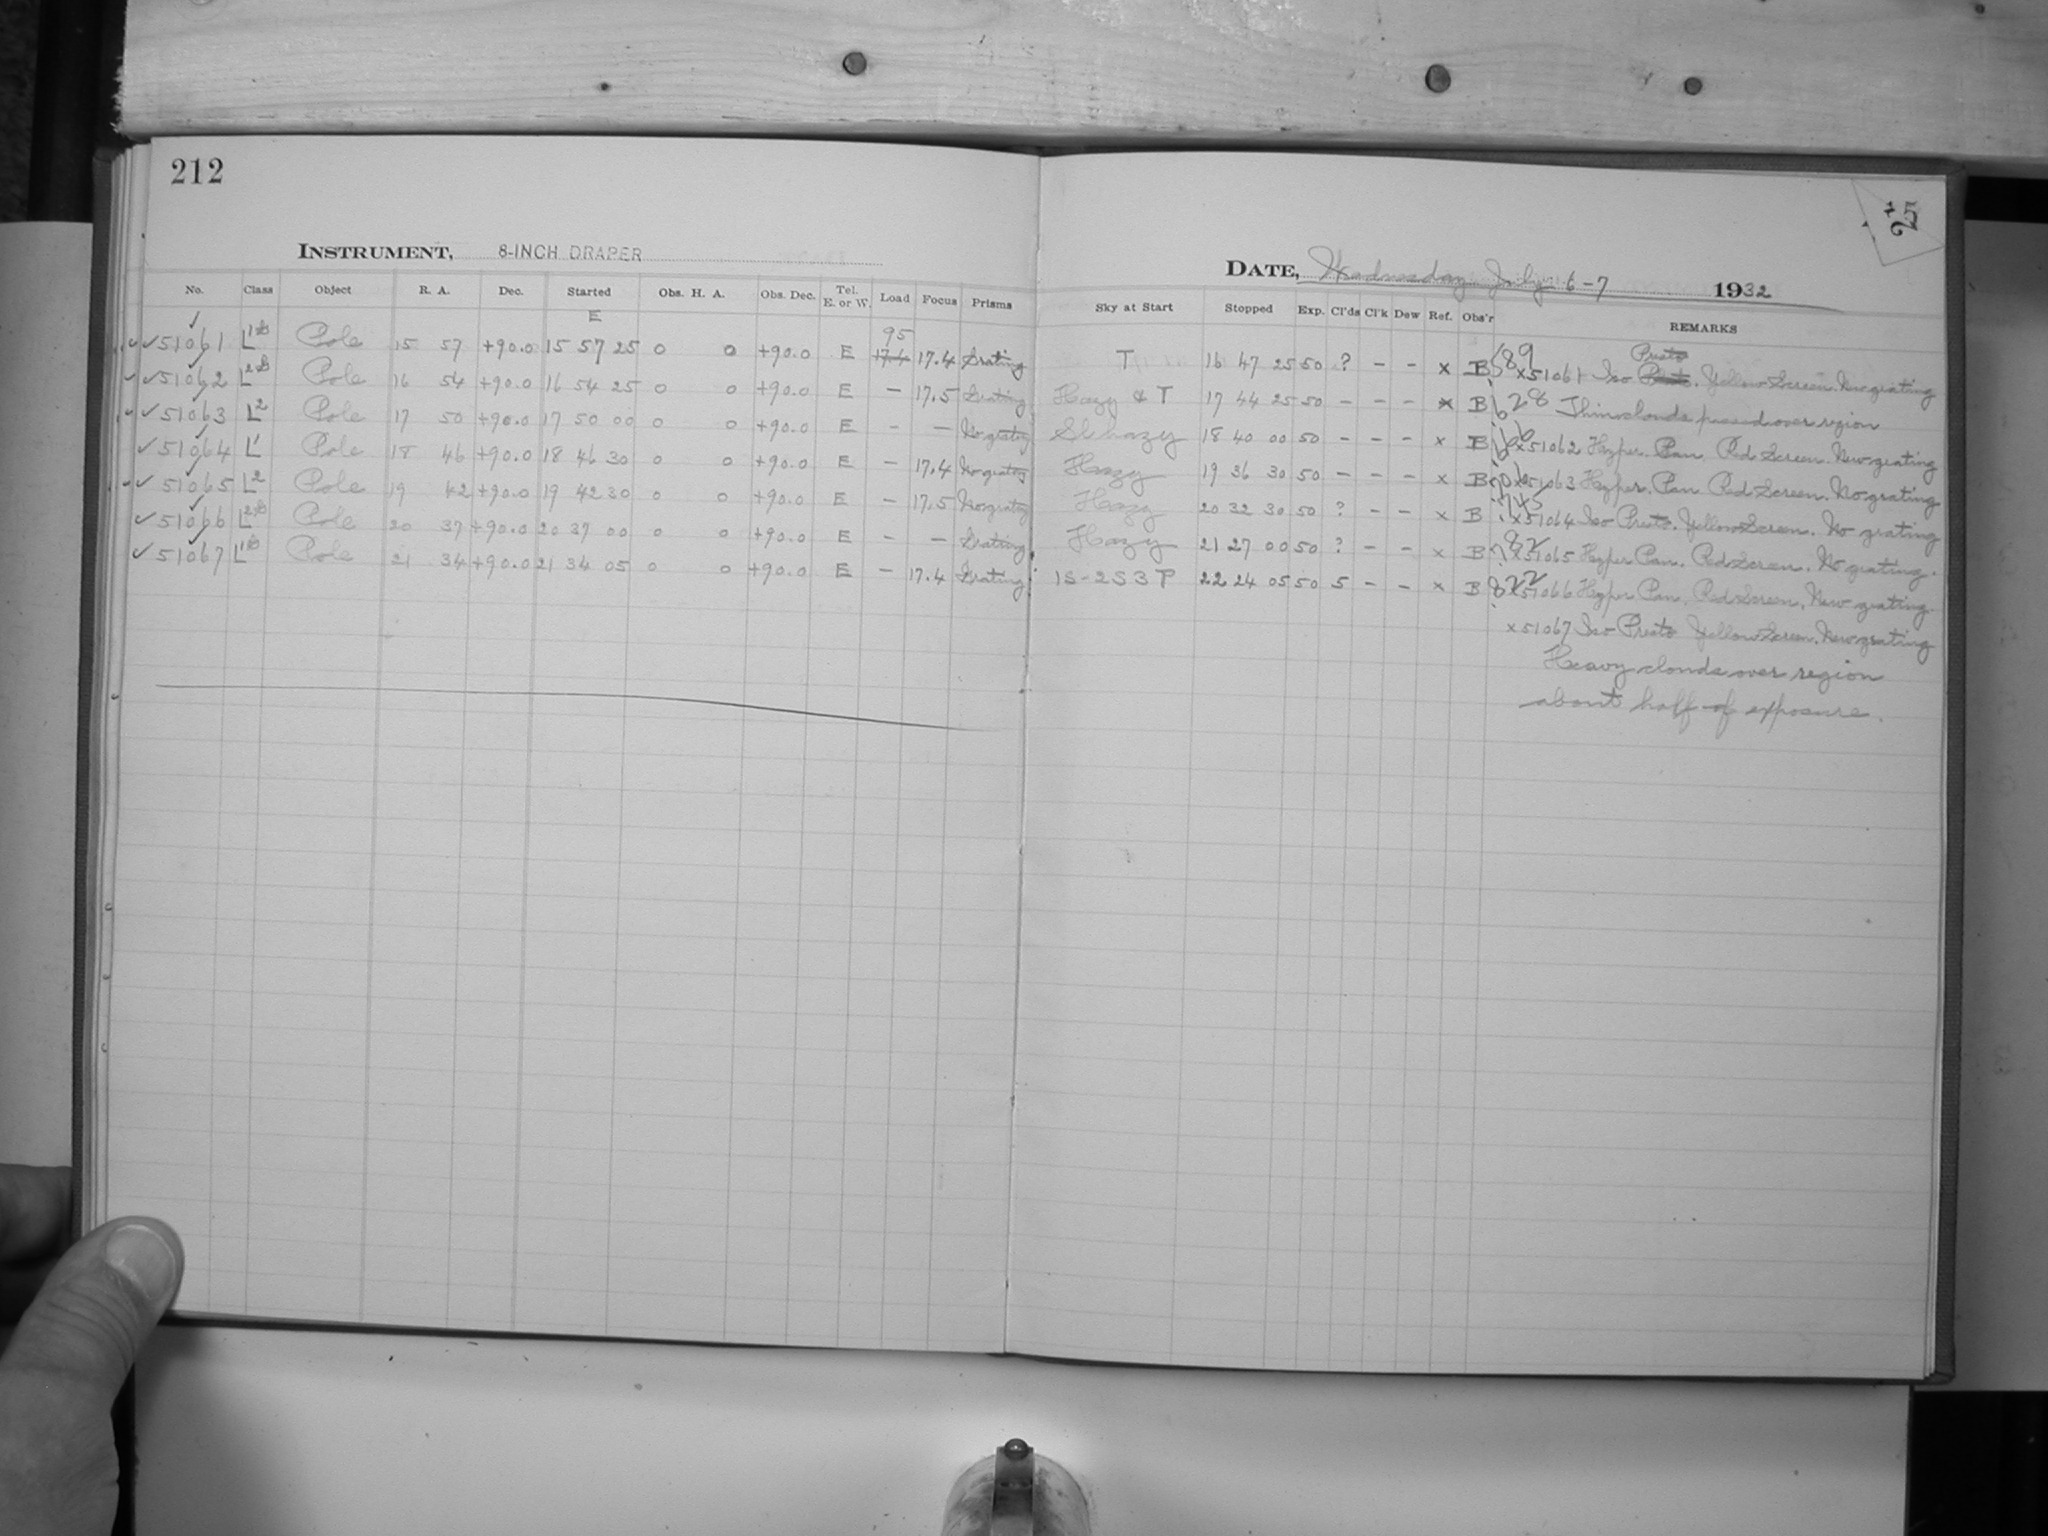 212
75
INSTRUMENT, 8-INCH DRAPER
DATE, Wednesday July 6-7 1932
No. Class Object R. A. Dec. Started Obs. H. A. Obs. Dec. Tel. E. or W. Load Focus Prisms Sky at Start Stopped Exp. Cl'ds Cl'k Dew Ref. Obs'r REMARKS
E 95
51061 L Pole 15 57 +90.0 15 57 25 0 0 +90.0 E 17.4 17.4 Grating T 16 47 25 50 ? - - x B 589
51062 L Pole 16 54 +90.0 16 54 25 0 0 +90.0 E - 17.5 Grating Hazy & T 17 44 25 50 - - - x B 628
51063 L2 Pole 17 50 +90.0 17 50 00 0 0 +90.0 E - - No grating Sl. hazy 18 40 00 50 - - - x B
51064 L1 Pole 18 46 +90.0 18 46 30 0 0 +90.0 E - 17.4 No grating Hazy 19 36 30 50 - - - x B
51065 L2 Pole 19 42 +90.0 19 42 30 0 0 +90.0 E - 17.5 No grating Hazy 20 32 30 50 ? - - x B 745
51066 L Pole 20 37 +90.0 20 37 00 0 0 +90.0 E - - Grating Hazy 21 27 00 50 ? - - x B 782
51067 L Pole 21 34 +90.0 21 34 05 0 0 +90.0 E - 17.4 Grating 1S-2S3P 22 24 05 50 5 - - x B 822
Presto
x51061 Iso Presto. Yellow Screen. New grating
Thin clouds passed over region
x51062 Hyper. Pan. Red Screen. New grating
x51063 Hyper. Pan Red Screen. No grating
x51064 Iso Presto. Yellow Screen. No grating
x51065 Hyper Pan. Red Screen. No grating.
x51066 Hyper Pan. Red Screen, New grating.
x51067 Iso Presto Yellow Screen. New grating
Heavy clouds over region
about half of exposure.